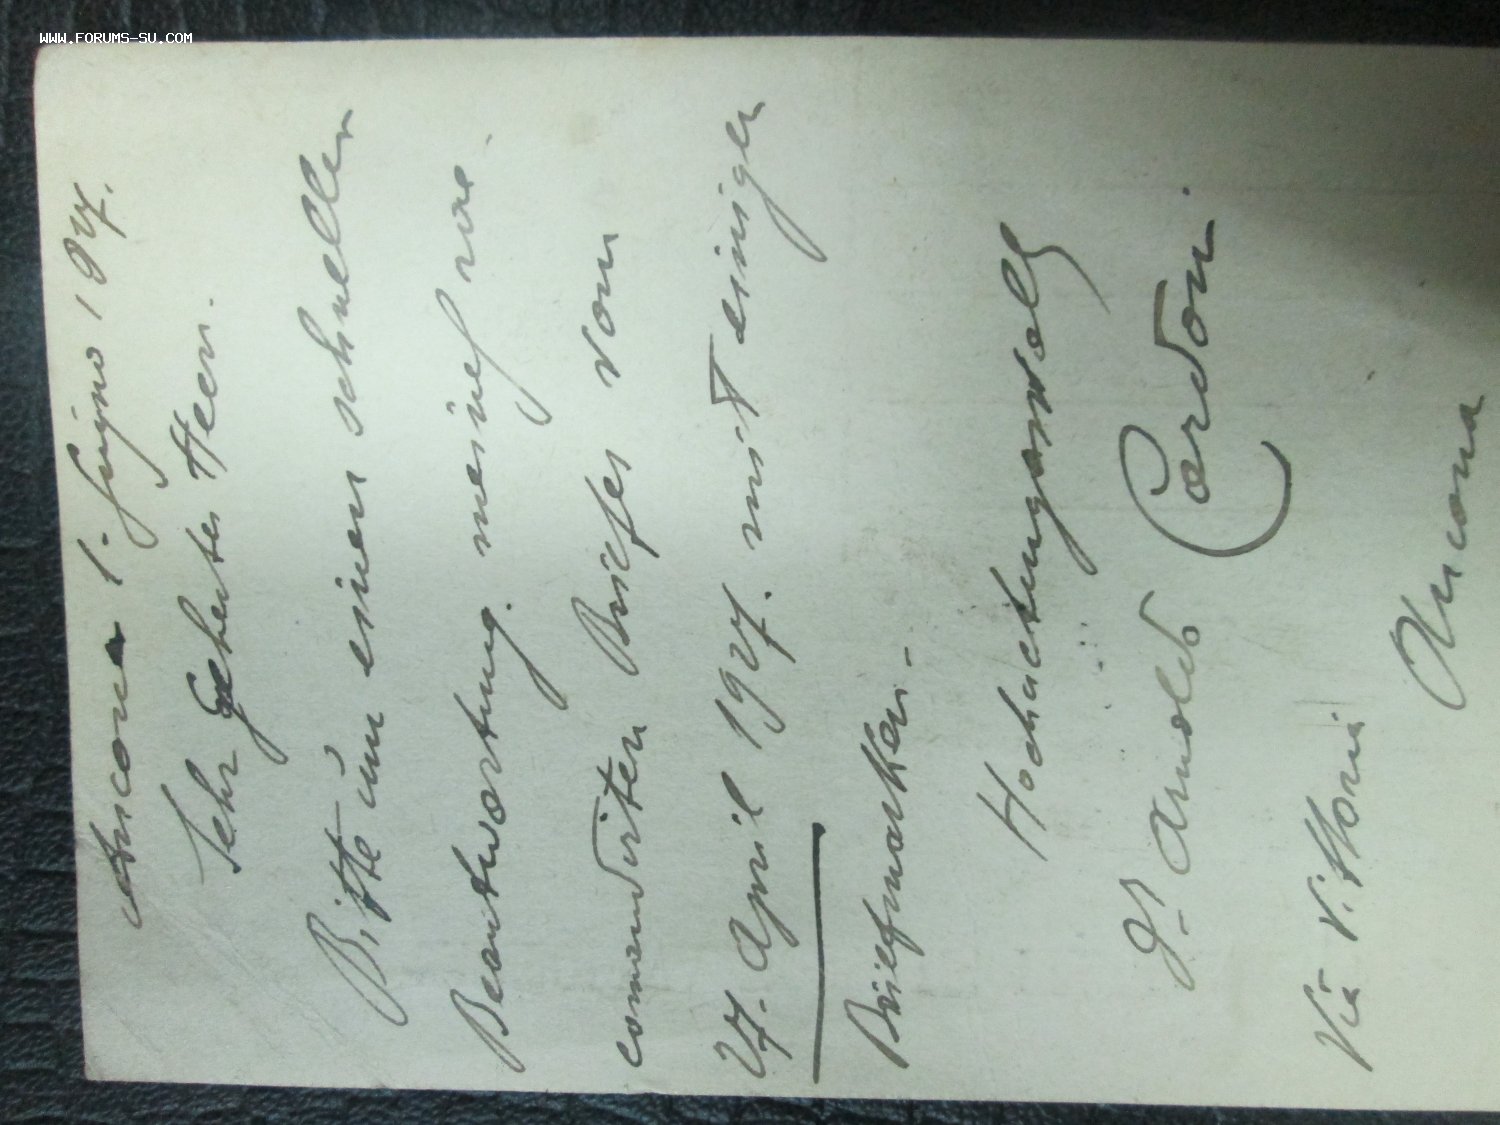 WWW.FORUMS-SU.COM
Ancona 1. Giugno 1927.
Sehr geherter Herr.
Bitte um einen schnellen
Beantwortung meines rac-
comandirten Briefes vom
27. April 1927. mit einigen
Briefmarken -
Hochachtungsvoll
Arnoldo Cardoni
Via Vittoria
Ancona